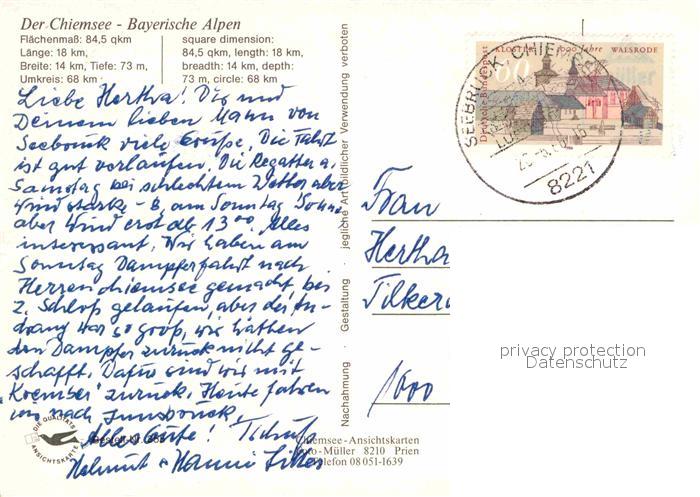 Der Chiemsee - Bayerische Alpen
Flächenmaß: 84,5 qkm
Länge: 18 km,
Breite: 14 km, Tiefe: 73 m,
Umkreis: 68 km
square dimension:
84,5 qkm, length: 18 km,
breadth: 14 km, depth:
73 m, circle: 68 km
Liebe Hertha! Dir und
Deinem lieben Mann von
Seebruck viele Grüße. Die Fahrt
ist gut verlaufen. Die Regatten a.
Samstag bei schlechtem Wetter aber
Windstärke - 8, am Sonntag Sonne
aber Wind erst ab 13 00. Alles
interessant. Wir haben am
Sonntag Dampferfahrt nach
Herrenchiemsee gemacht, bis
z. Schloß gelaufen, aber der An-
drang war so groß, wir hätten
den Dampfer zurück nicht ge-
schafft. Dafür sind wir mit
zurück. Heute fahren
wir nach Innsbruck.
Alles Gute! Tschüß
Helmut + Hanni
DIE QUALITÄTS
ANSICHTSKARTE
Bestell-Nr.
Chiemsee-Ansichtskarten
Foto-Müller 8210 Prien
Telefon 08051-1639
Nachahmung · Gestaltung · jegliche Art bildlicher Verwendung verboten
KLOSTER 1000 Jahre WALSRODE
Deutsche Bundespost
60
SEEBRUCK, CHIEMSEE
8221
Frau
Hertha
1000
privacy protection
Datenschutz